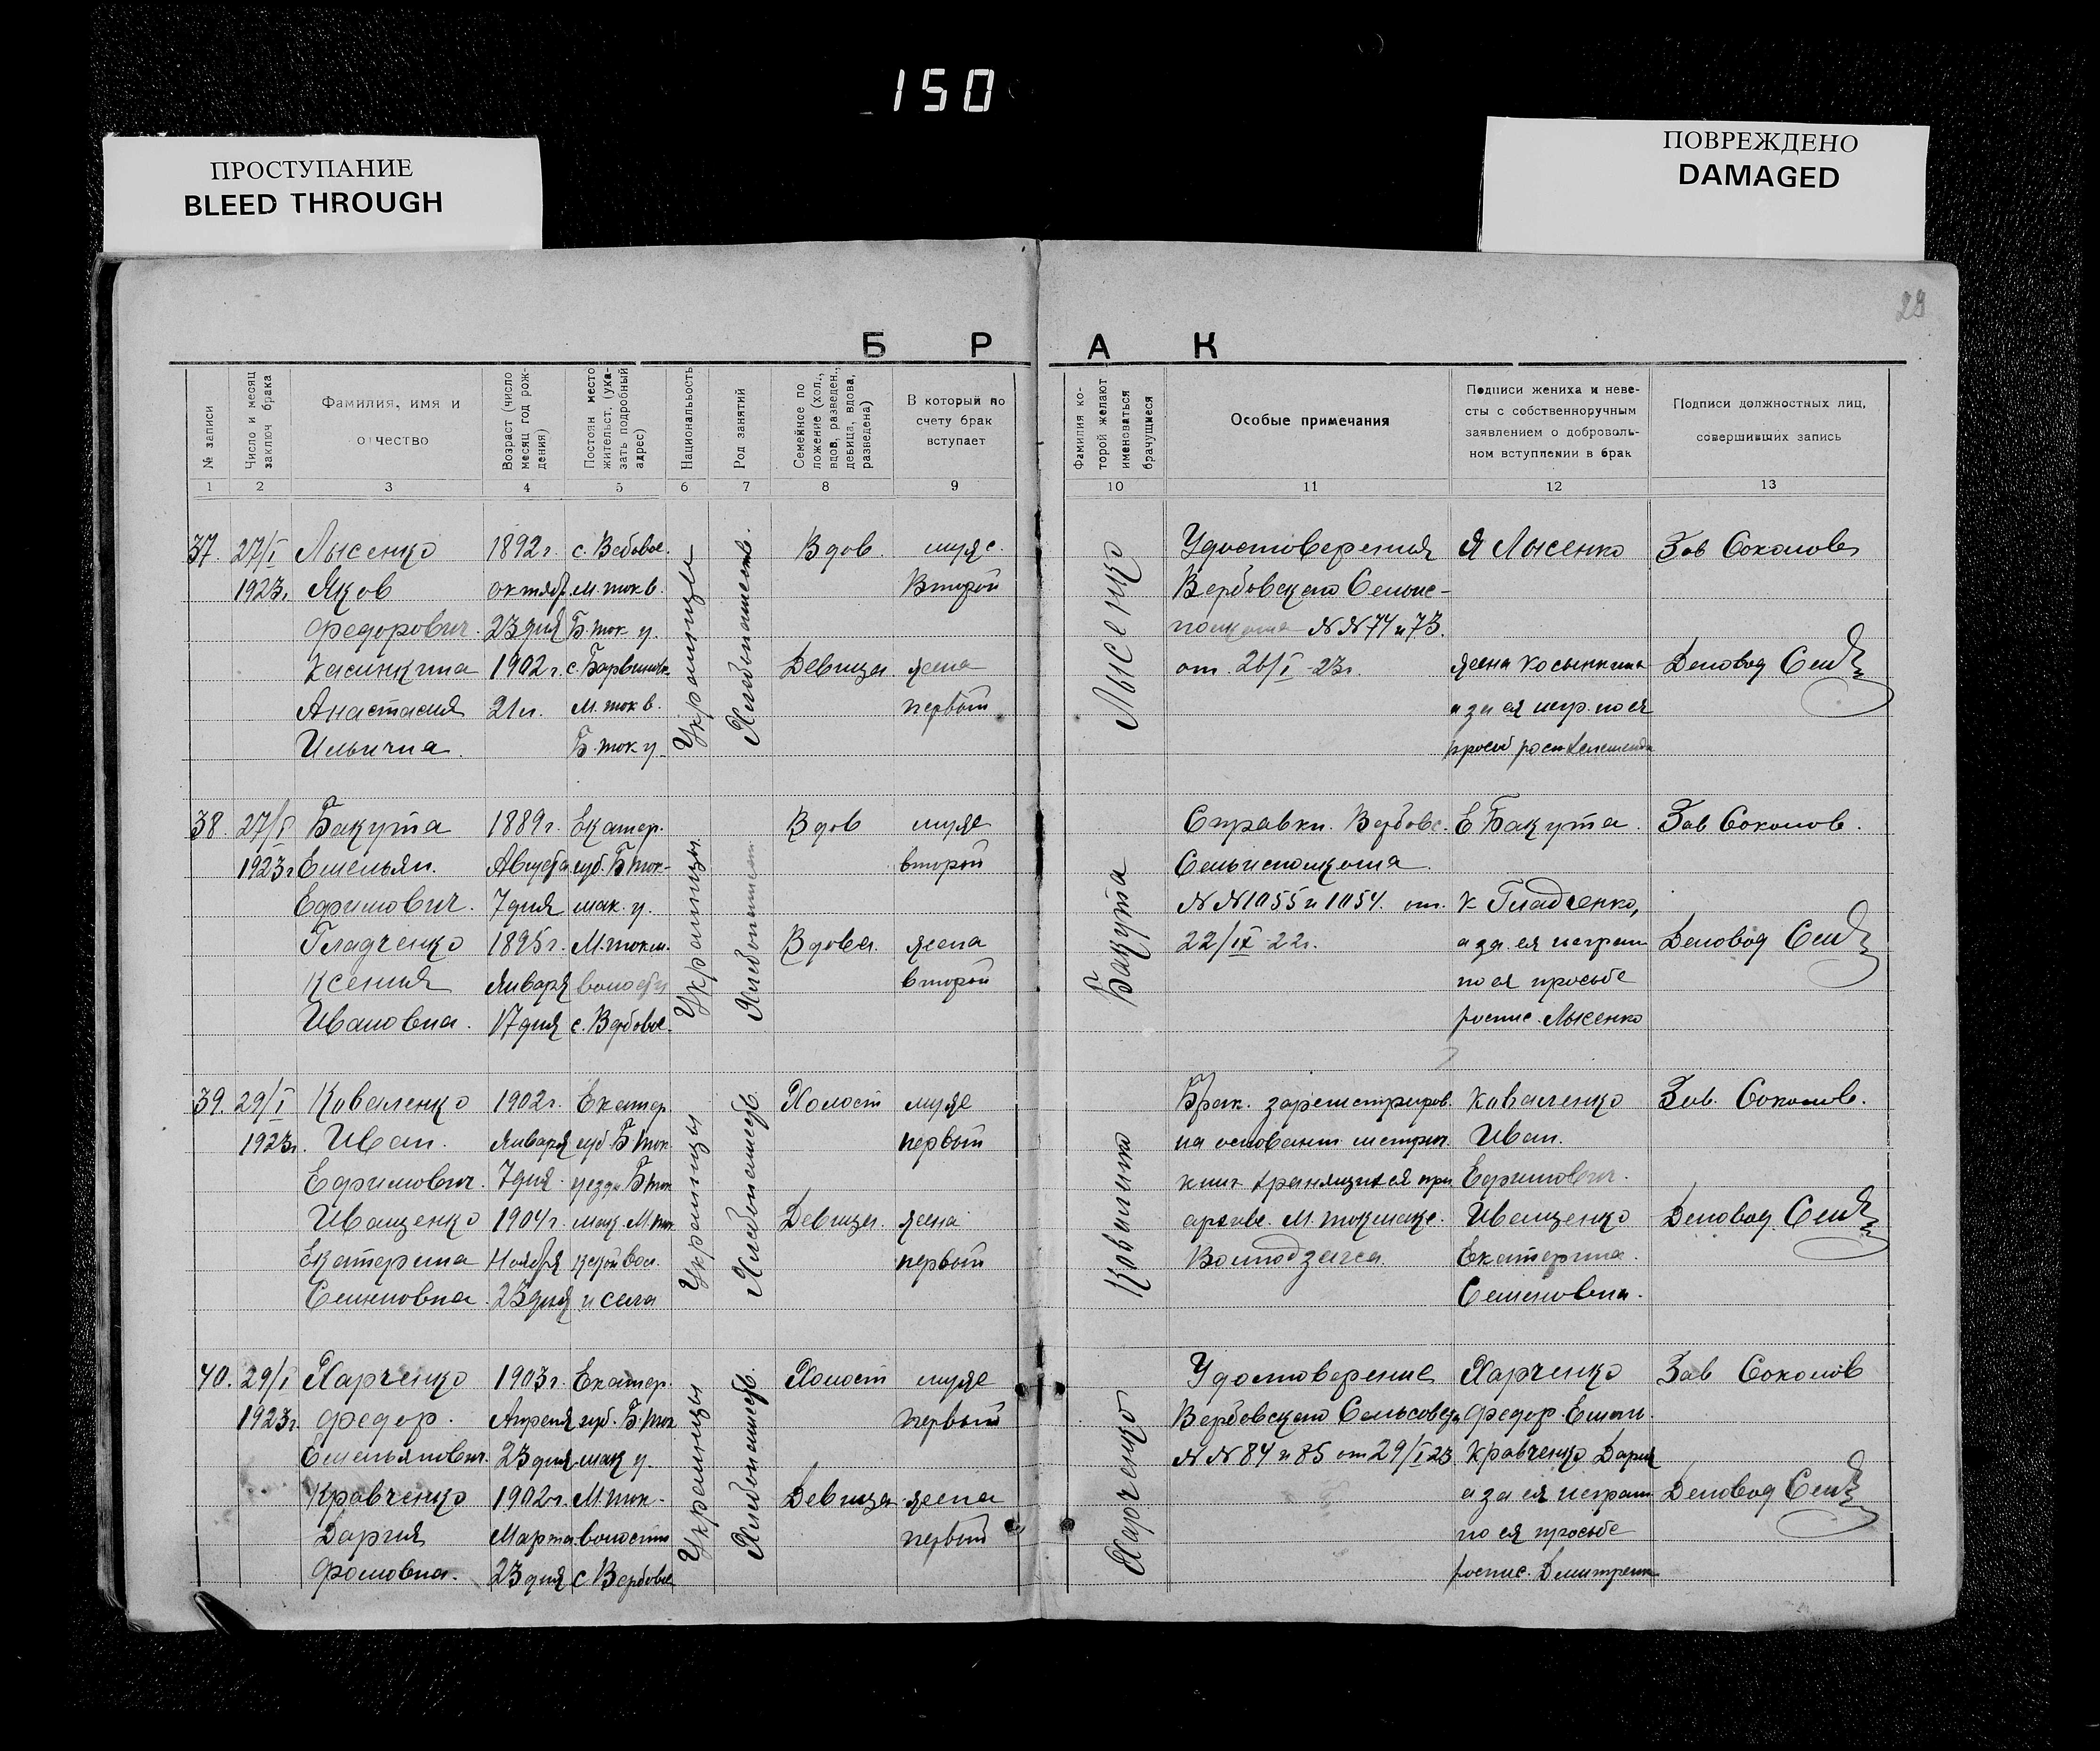 150
ПРОСТУПАНИЕ
BLEED THROUGH
ПОВРЕЖДЕНО
DAMAGED
29
БРАК
№ записи
Число и месяц заключ брака
Фамилия, имя и отчество
Возраст (число месяц год рождения)
Постоян место жительст, (указать подробный адрес)
Национальность
Род занятий
Семейное положение (хол., вдов, разведен., девица, вдова, разведена)
В который по счету брак вступает
Фамилия которой желают именоваться брачущиеся
Особые примечания
Подписи жениха и невесты с собственноручным заявлением о добровольном вступлении в брак
Подписи должностных лиц, совершивших запись
1 2 3 4 5 6 7 8 9 10 11 12 13
37. 27/I Лысенко 1892 г. с. Вебовое. Вдов. муж с.
1923 г. Яков октябр. М. ток в. Второй
Федорович. 23 дня Б. ток у.
1902 г. Девица жена
Анастасия 21 л. М. ток в. первый
Ильична. Б. ток у.
Украинцы
Лысенко
Удостоверения Я Лысенко Зав Соколов
Вербовского Сельис-
полкома NN 74 и 73.
от 26/I-23 г. Деловод
а за ея негр. по ея
38. 27/I Бакута 1889 г. Екатер. Вдов муж
1923 г. Емельян. Августа губ. Б ток- второй
Ефимович. 7 дня мак. у.
Гладченко 1895 г. М. токм. Вдова. жена
Ксения Января волости второй
Ивановна. 17 дня с. Вербовое.
Украинцы
Бакута
Справки. Вербовс. Е Бакута. Зав Соколов.
Сельисполкома
NN 1055 и 1054. от. К Гладченко,
22/IX-22 г. а за ея неграм Деловод
по ея просьбе
роспис. Лысенко
39. 29/I Коваленко 1902 г. Екатер. Холост муж
1923 г. Иван. Января губ Б ток. первый
Ефимович. 7 дня. уезда Б ток
Иващенко 1904 г. мак. М. ток Девица. жена
Екатерина Ноября ской вол. первый
Семеновна. 23 дня и села
Украинцы Хлебопашеств.
Брак. зарегистриров. Коваленко Зав. Соколов.
на основании метрич. Иван.
книг хранящихся при Ефимович.
архиве. М. Токмакс. Иващенко Деловод
Волподзагса. Екатерина.
Семеновна.
40. 29/I Харченко 1903 г. Екатер. Холост муж
1923 г. Федор. Апреля губ. Б. ток первый
Емельянович. 23 дня мак у.
Кравченко 1902 г. М. ток- Девица жена
Дария Марта волости первый
Фомовна. 23 дня с Вербовое
Украинцы Хлебопашеств.
Харченко
Удостоверение Харченко Зав Соколов
Вербовского Сельсовета Федор Емель.
NN 84 и 85 от 29/I 23 Кравченко Дария
а за ея неграм Деловод
по ея просьбе
роспис. Дмитренк